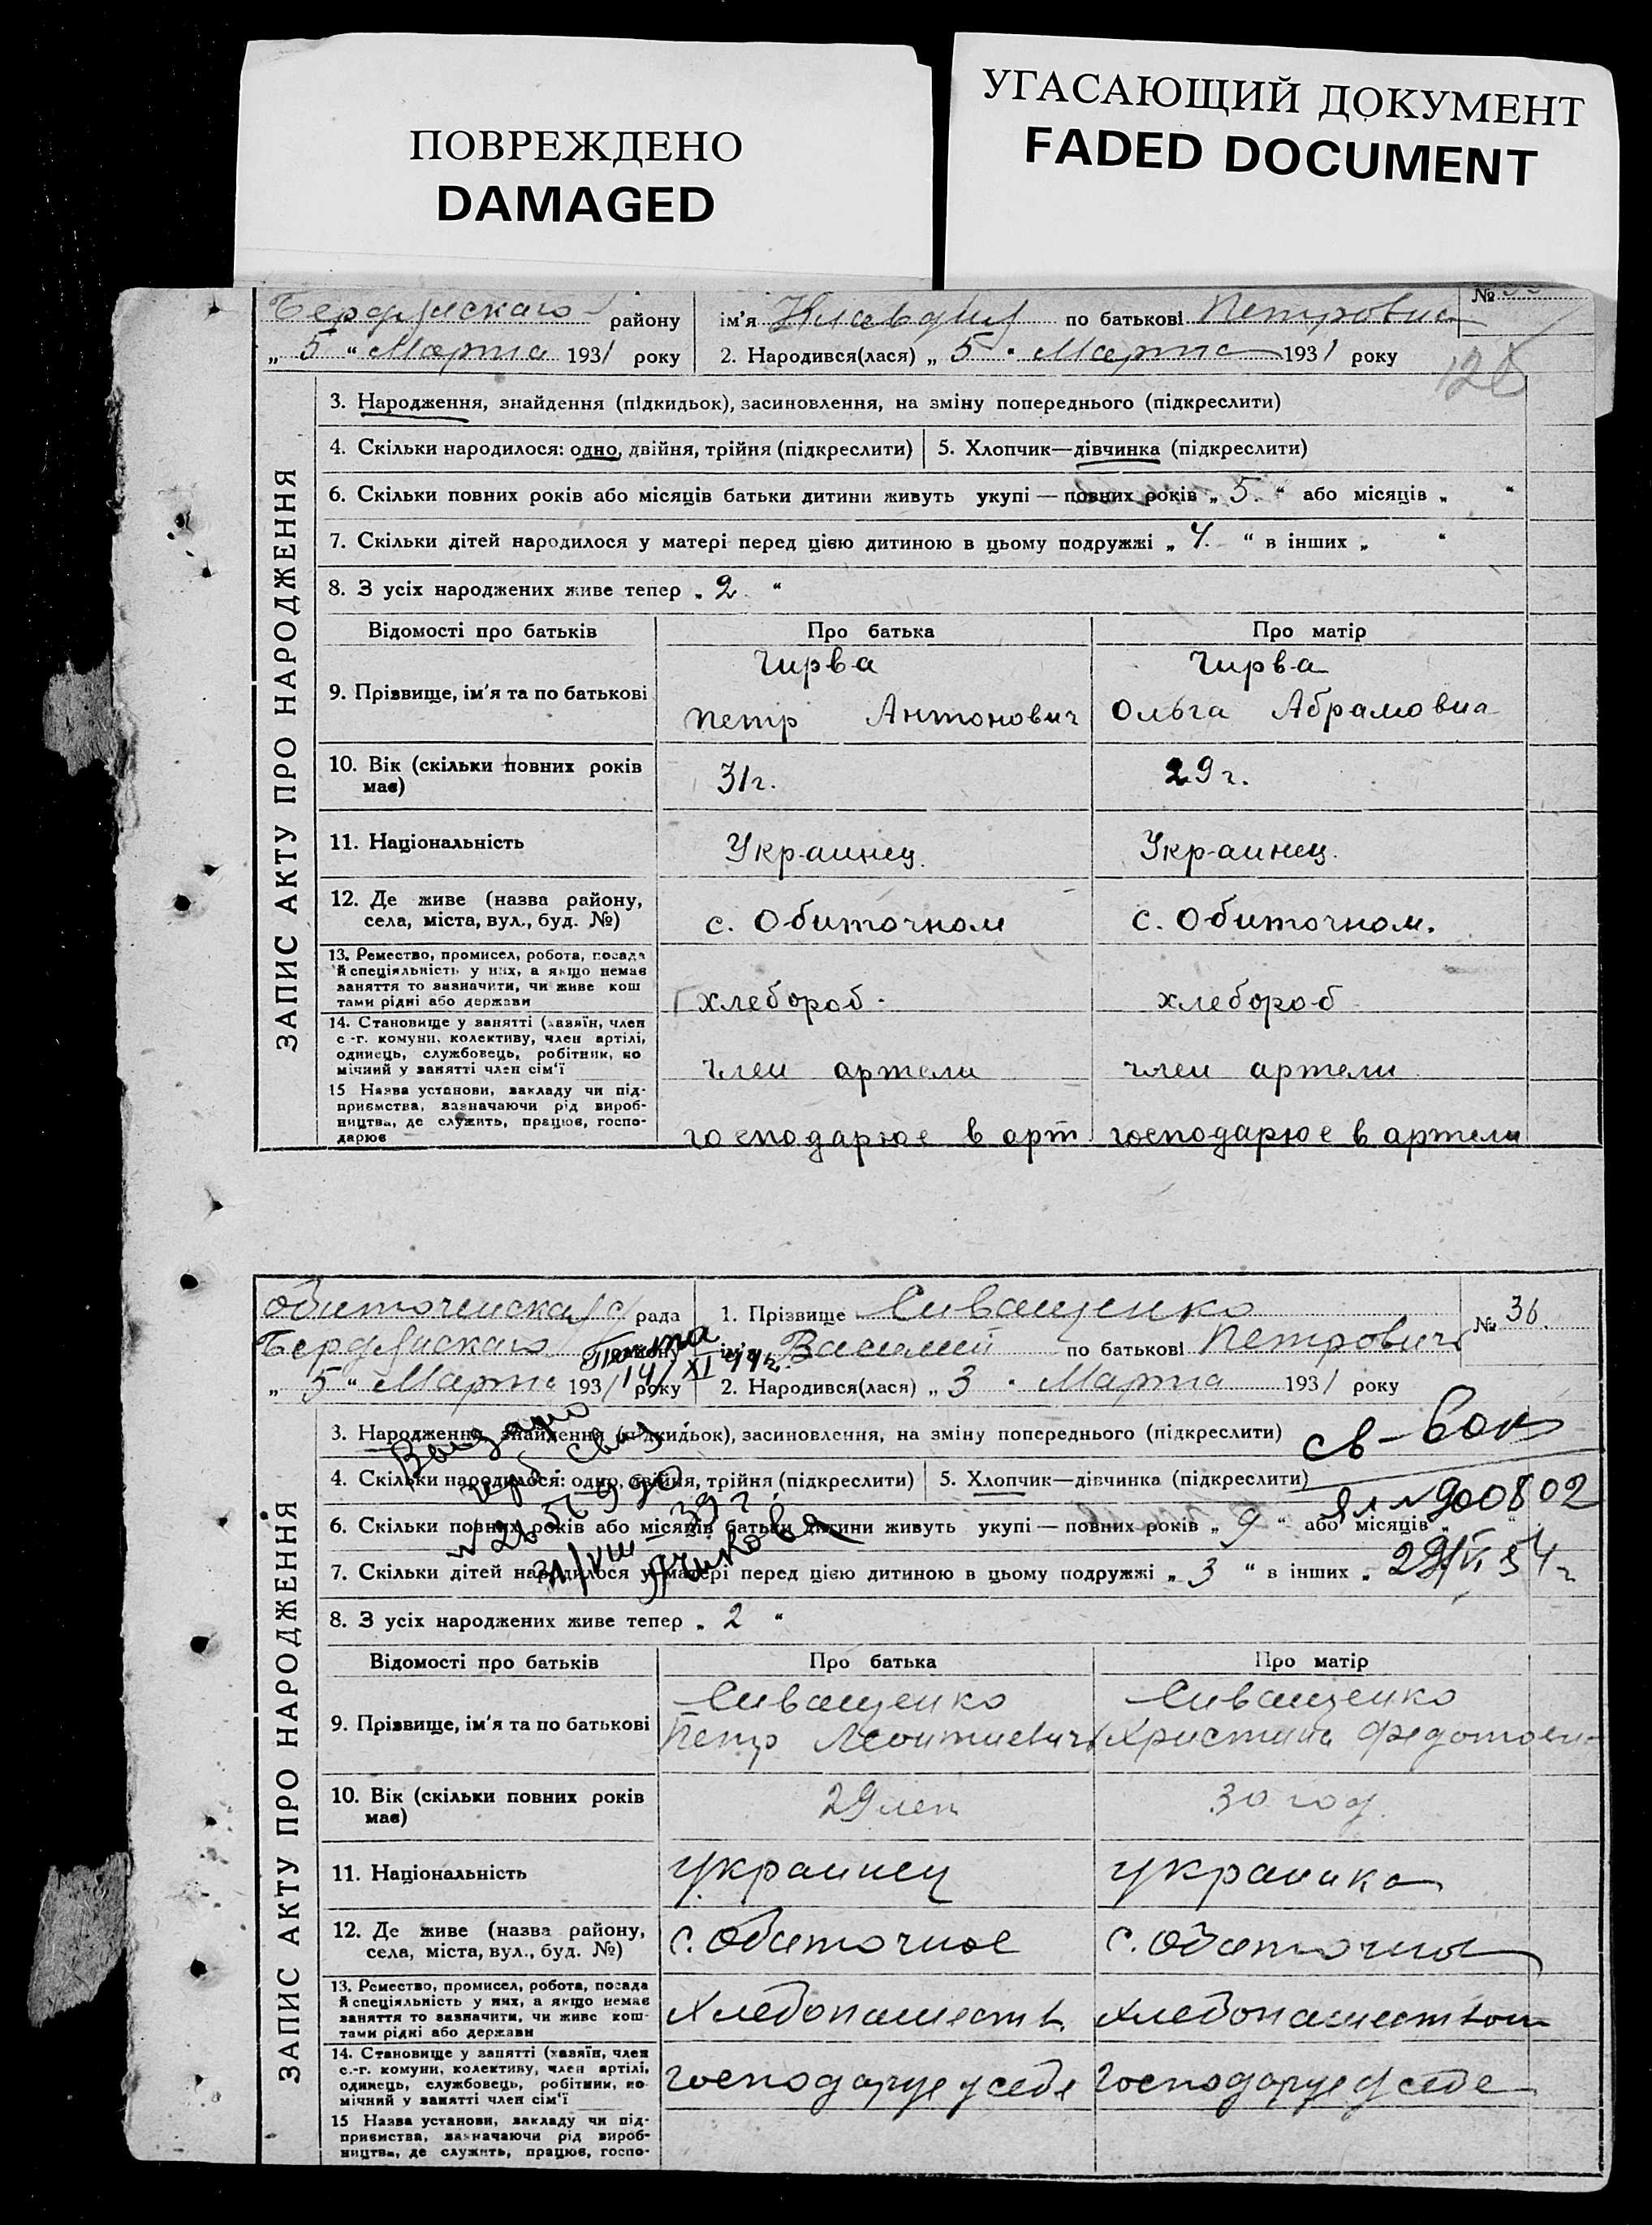 ПОВРЕЖДЕНО
DAMAGED
УГАСАЮЩИЙ ДОКУМЕНТ
FADED DOCUMENT
ЗАПИС АКТУ ПРО НАРОДЖЕННЯ
Бердянскаго району ім'я Клавдия по батькові Петровна №
„ 5 “ Марта 1931 року 2. Народився(лася) „ 5 “ Марта 1931 року
3. Народження, знайдення (підкидьок), засиновлення, на зміну попереднього (підкреслити)
4. Скільки народилося: одно, двійня, трійня (підкреслити) 5. Хлопчик—дівчинка (підкреслити)
6. Скільки повних років або місяців батьки дитини живуть укупі — повних років „ 5. “ або місяців „ “
7. Скільки дітей народилося у матері перед цією дитиною в цьому подружжі „ 4. “ в інших „ “
8. З усіх народжених живе тепер „ 2. “
Відомості про батьків Про батька Про матір
9. Прізвище, ім'я та по батькові
Чирва Чирва
Петр Антонович Ольга Абрамовна
10. Вік (скільки повних років має) 31 г. 29 г.
11. Національність Украинец. Украинец.
12. Де живе (назва району,
села, міста, вул., буд. №) с. Обиточном с. Обиточном.
13. Ремество, промисел, робота, посада
й спеціяльність у них, а якщо немає
заняття то зазначити, чи живе кош
тами рідні або держави
хлебороб. хлебороб
14. Становище у занятті (хазяїн, член
с.-г. комуни, колективу, член артілі,
одинець, службовець, робітник, по
мічний у занятті член сім'ї
член артели член артели
15 Назва установи, закладу чи під-
приємства, зазначаючи рід вироб-
ництва, де служить, працює, госпо-
дарює
господарює в арт господарює в артели
ЗАПИС АКТУ ПРО НАРОДЖЕННЯ
Обиточенская с/рада 1. Прізвище Сиващенко № 36.
Бердянскаго району ім'я Василий по батькові Петрович
„ 5 “ Марта 1931 року 2. Народився(лася) „ 3 “ Марта 1931 року
14/XI 44 г.
3. Народження, знайдення (підкидьок), засиновлення, на зміну попереднього (підкреслити)
Выдано
св-во
4. Скільки народилося: одно, двійня, трійня (підкреслити) 5. Хлопчик—дівчинка (підкреслити)
№ 900802
6. Скільки повних років або місяців батьки дитини живуть укупі — повних років „ 9 “ або місяців „ “
31/VIII 39 г.
7. Скільки дітей народилося у матері перед цією дитиною в цьому подружжі „ 3 “ в інших „
54 г
8. З усіх народжених живе тепер „ 2 “
Відомості про батьків Про батька Про матір
9. Прізвище, ім'я та по батькові
Сиващенко Сиващенко
Петр Леонтиевич Христина Федотовн
10. Вік (скільки повних років має) 29 лет 30 год.
11. Національність Украинец украинка
12. Де живе (назва району,
села, міста, вул., буд. №) с. Обиточное с. Обиточное
13. Ремество, промисел, робота, посада
й спеціяльність у них, а якщо немає
заняття то зазначити, чи живе кош
тами рідні або держави
Хлебопашеств. хлебопашеством
14. Становище у занятті (хазяїн, член
с.-г. комуни, колективу, член артілі,
одинець, службовець, робітник, по
мічний у занятті член сім'ї
господарує у себе господарує у себе
15 Назва установи, закладу чи під-
приємства, зазначаючи рід вироб-
ництва, де служить, працює, госпо-